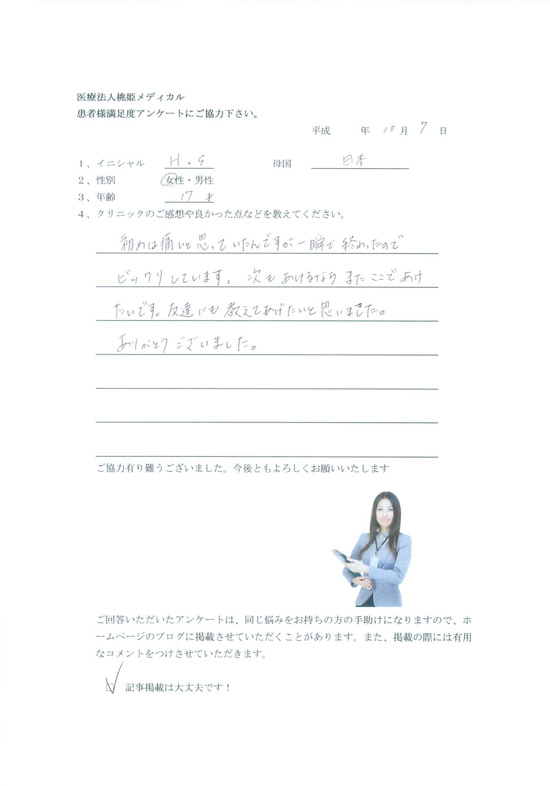 医療法人桃姫メディカル
患者様満足度アンケートにご協力下さい。
平成　　年 10 月 7 日
1、イニシャル　H・S　母国　日本
2、性別　女性・男性
3、年齢　17 才
4、クリニックのご感想や良かった点などを教えてください。
初めは痛いと思っていたんですが一瞬で終わったので
ビックリしています。次もあけるならまたここであけ
たいです。友達にも教えてあげたいと思いました。
ありがとうございました。
ご協力有り難うございました。今後ともよろしくお願いいたします
ご回答いただいたアンケートは、同じ悩みをお持ちの方の手助けになりますので、ホ
ームページのブログに掲載させていただくことがあります。また、掲載の際には有用
なコメントをつけさせていただきます。
記事掲載は大丈夫です！